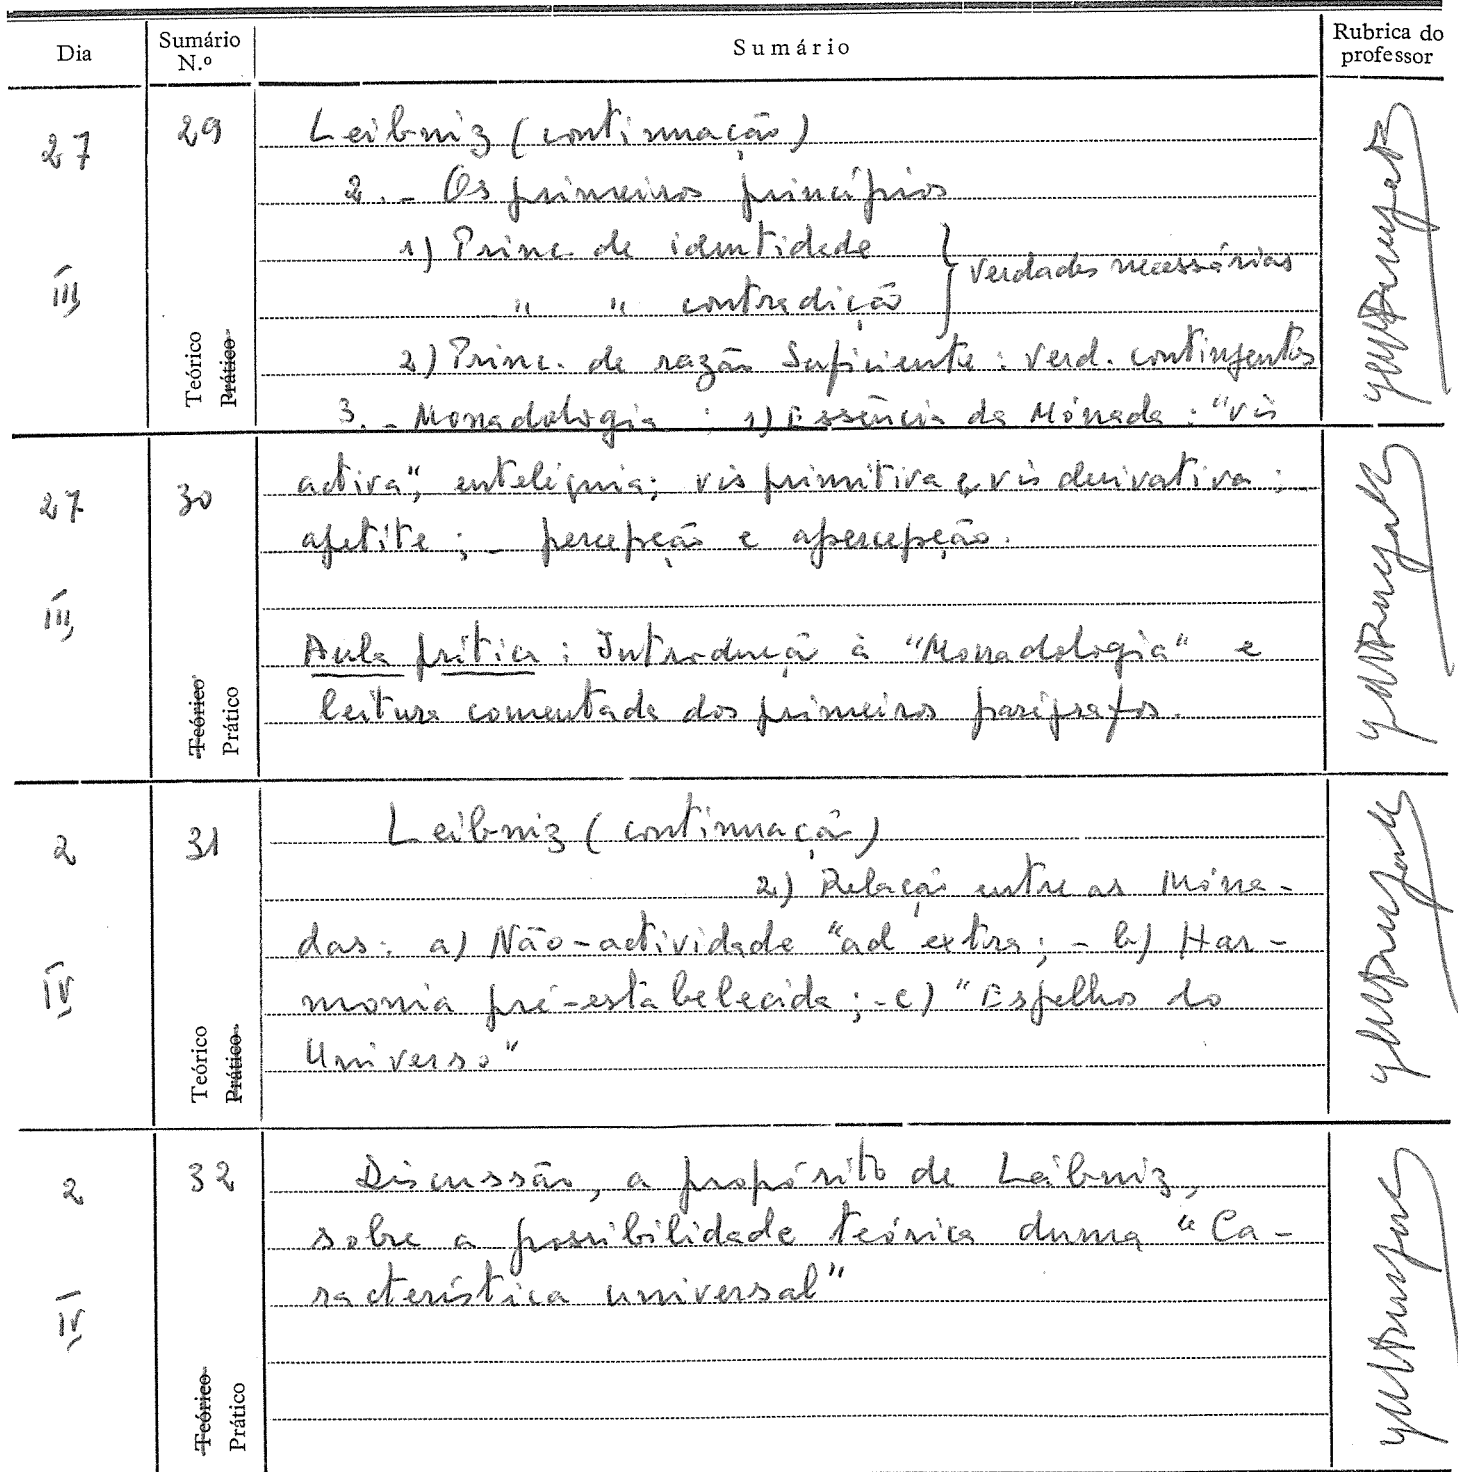 Dia Sumário N.º Sumário Rubrica do professor
27 III 29 Teórico Prático
Leibniz (continuação)
2. - Os primeiros princípios
1) Princ. de identidade
" " contradição } verdades necessárias
2) Princ. de razão suficiente : verd. contingentes
3. - Monadologia : 1) Essência da Mónada : "vis
27 III 30 Teórico Prático
activa", enteléquia; vis primitiva e vis derivativa ; -
apetite ; - percepção e apercepção.
Aula prática : Introdução à "Monadologia" e
leitura comentada dos primeiros parágrafos.
2 IV 31 Teórico Prático
Leibniz (continuação)
2) Relação entre as Móna-
das: a) Não-actividade "ad extra; - b) Har-
monia pré-estabelecida ; - c) "Espelhos do
Universo"
2 IV 32 Teórico Prático
Discussão, a propósito de Leibniz,
sobre a possibilidade teórica duma "Ca-
racterística universal"